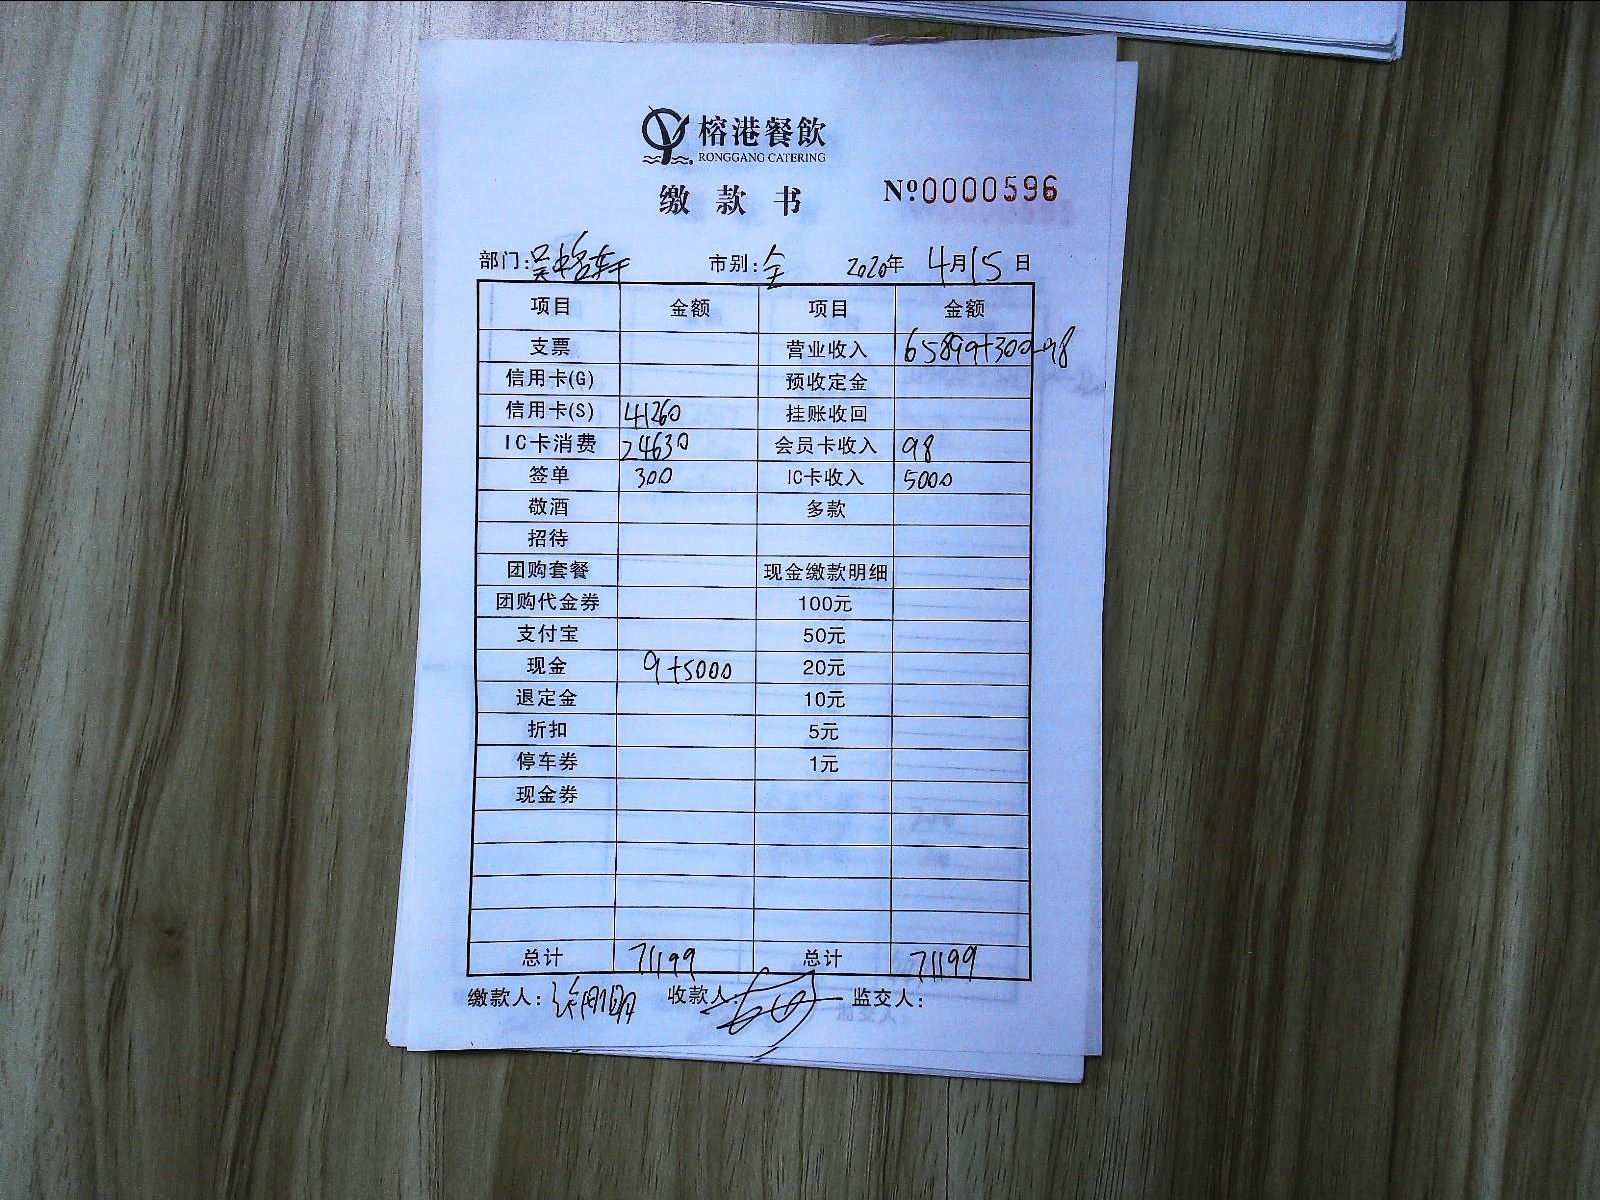 榕港餐飲
RONGGANG CATERING
缴款书 №0000596
部门: 市别:全 2020年 4月15日
项目 金额 项目 金额
支票 营业收入 65899+300-98
信用卡(G) 预收定金
信用卡(S) 41260 挂账收回
IC卡消费 24630 会员卡收入 98
签单 300 IC卡收入 5000
敬酒 多款
招待
团购套餐 现金缴款明细
团购代金券 100元
支付宝 50元
现金 9+5000 20元
退定金 10元
折扣 5元
停车券 1元
现金券
总计 71199 总计 71199
缴款人: 收款人: 监交人: